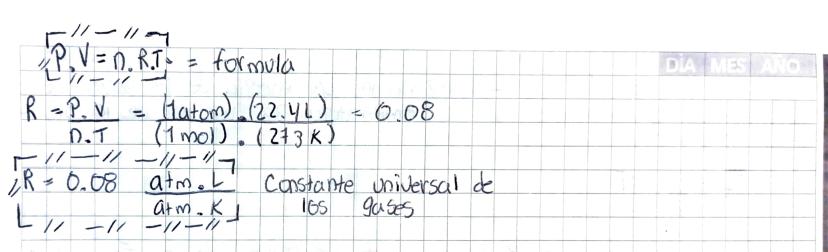 P.V = n.R.T. = formula
DÍA MES AÑO
R = P.V / n.T = (1atom).(22.4L) / (1mol).(273K) = 0.08
R = 0.08 atm.L / atm.K Constante universal de
los gases